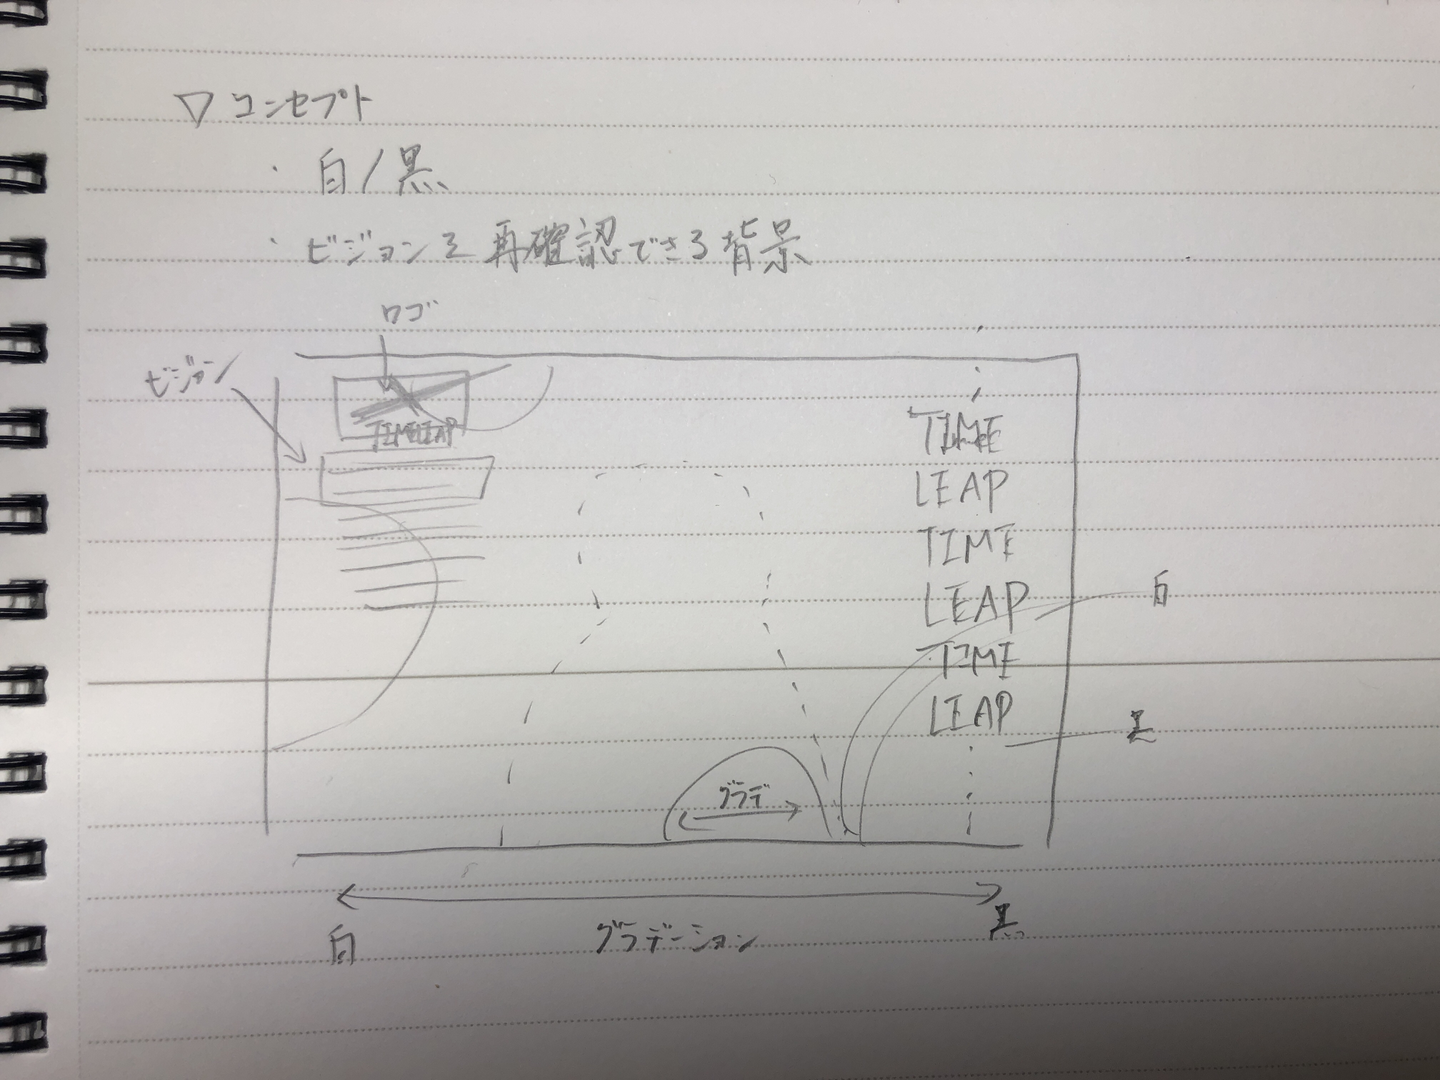 ▽コンセプト
・白/黒
・ビジョンを再確認できる背景
ロゴ
ビジョン
TIMELEAP
TIME
LEAP
TIME
LEAP
白
TIME
LEAP
グラデ
白
グラデーション
黒